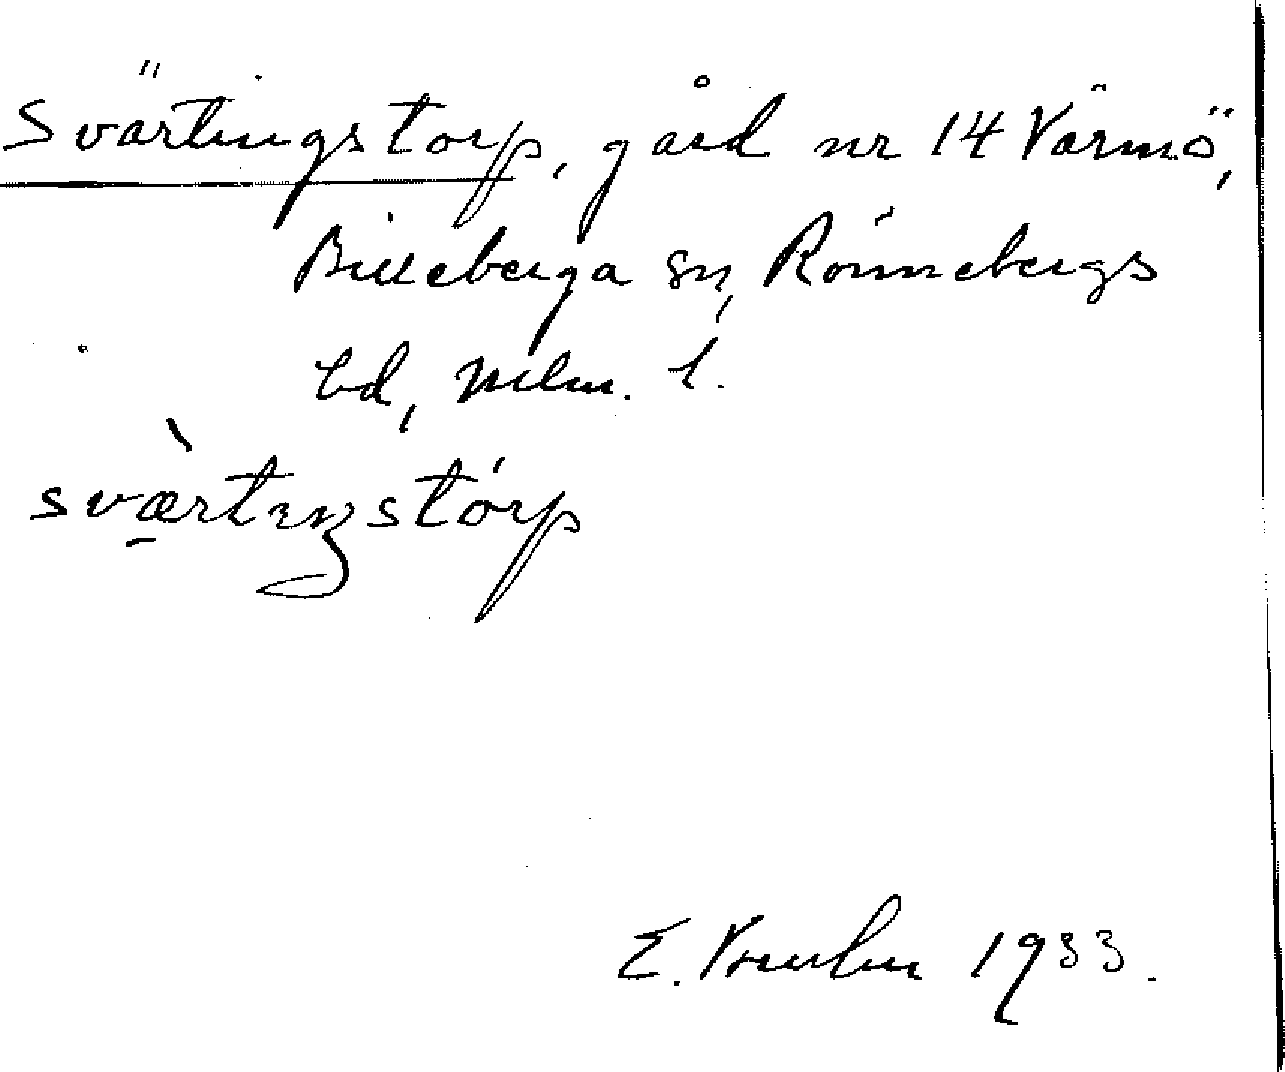 Svärtingstorp, gård nr 14 Värmö,
Billeberga sn, Rönnebergs
hd, Mlm. l.
sværtıŋstórp
E. 1933.